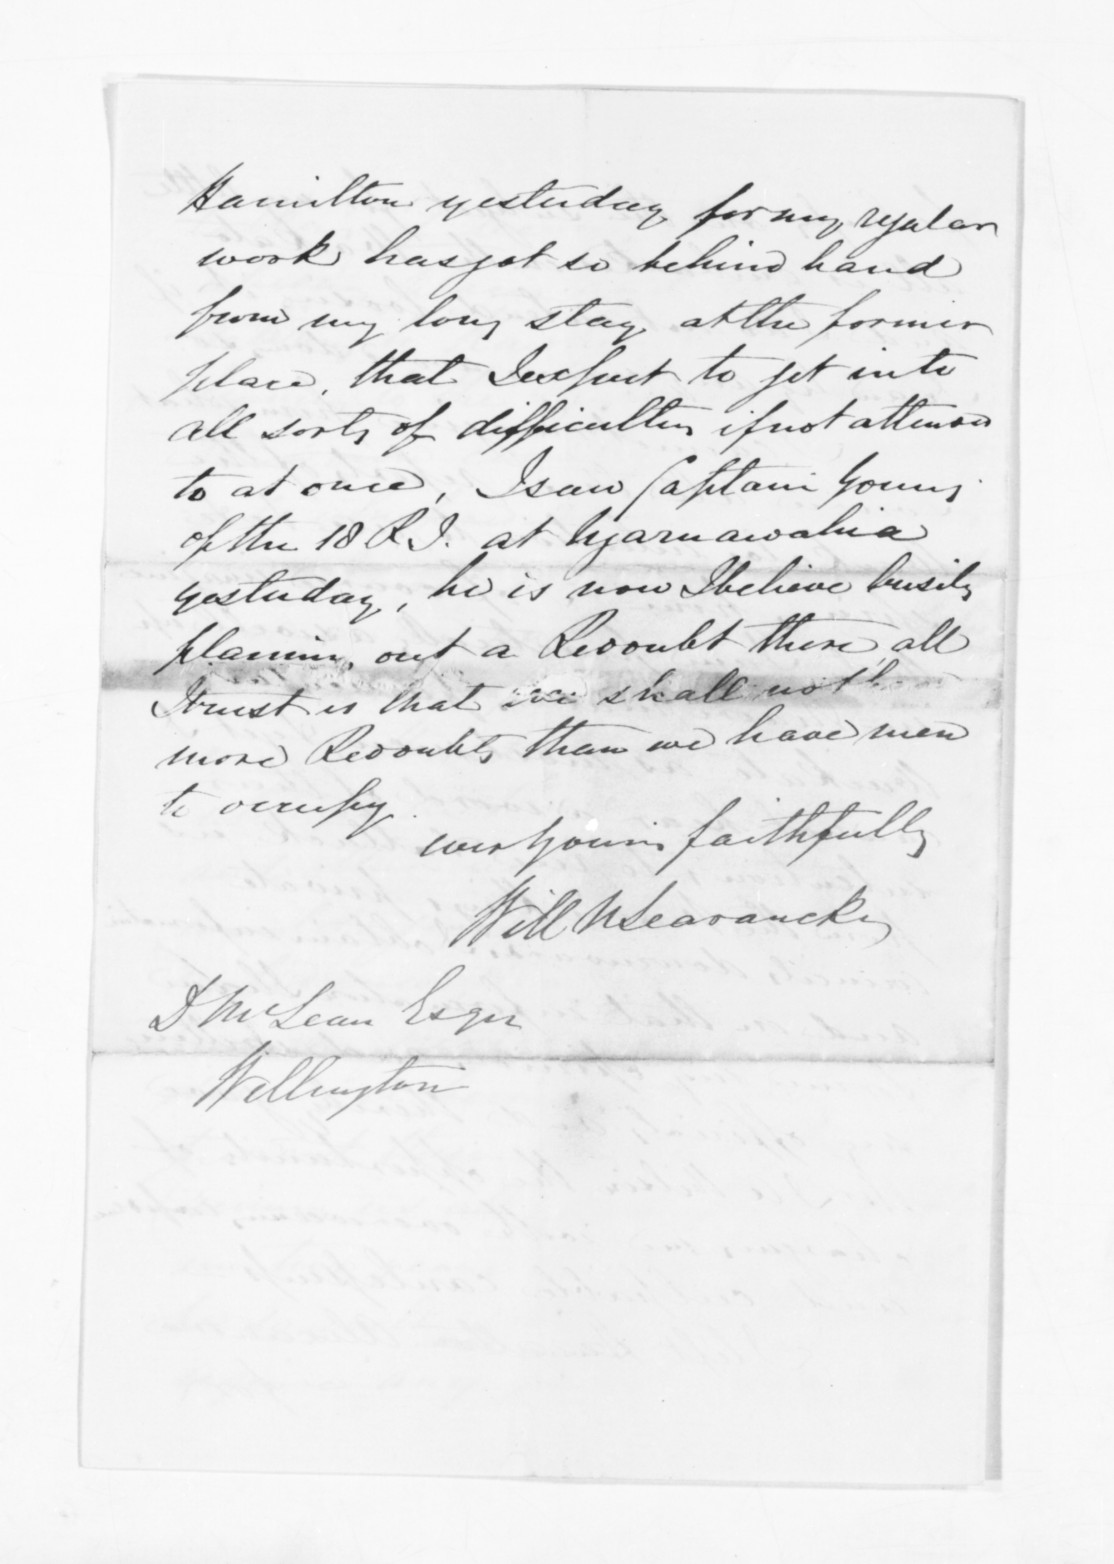 Hamilton yesterday for my regular
work has got so behind hand
from my long stay at the former
place, that I expect to get into
all sorts of difficulties if not attended
to at once, I saw Captain Young
of the 18 R I. at Ngaruawahia
yesterday, he is now I believe busily
planning out a Redoubt there, all
I trust is that we shall not
more Redoubts than we have men
to occupy.
ever yours faithfully
Will N Searancke
D McLean Esqr
Wellington